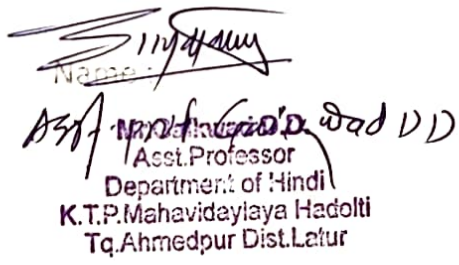 Name :
Asst. prof. wad D D
Asst.Professor
Department of Hindi
K.T.P.Mahavidaylaya Hadolti
Tq.Ahmedpur Dist.Latur